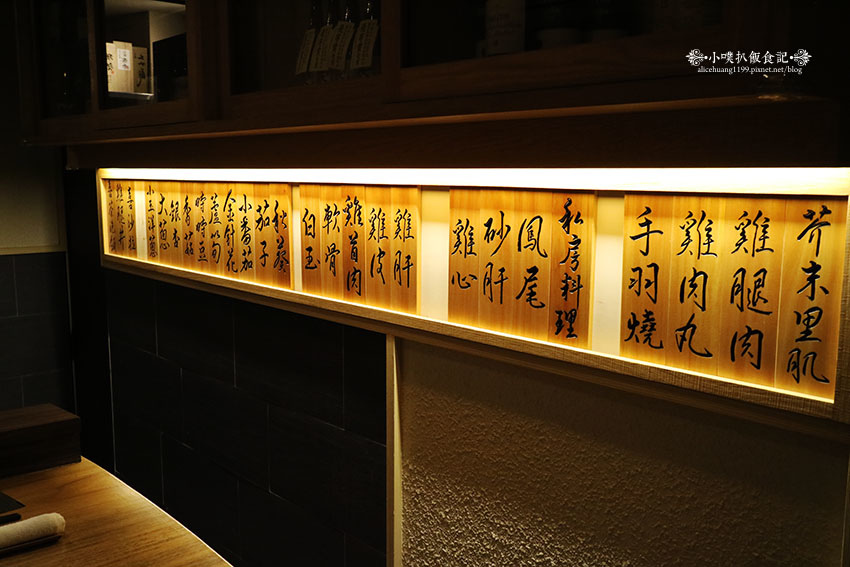 小噗扒飯食記
alicehuang1199.pixnet.net/blog
芥末里肌
雞腿肉
雞肉丸
手羽燒
私房料理
鳳尾
砂肝
雞心
雞肝
雞皮
雞首肉
軟骨
白玉
秋葵
茄子
小番茄
金針花
蘆筍
時時豆
香菇
銀杏
大蔥
小玉洋蔥